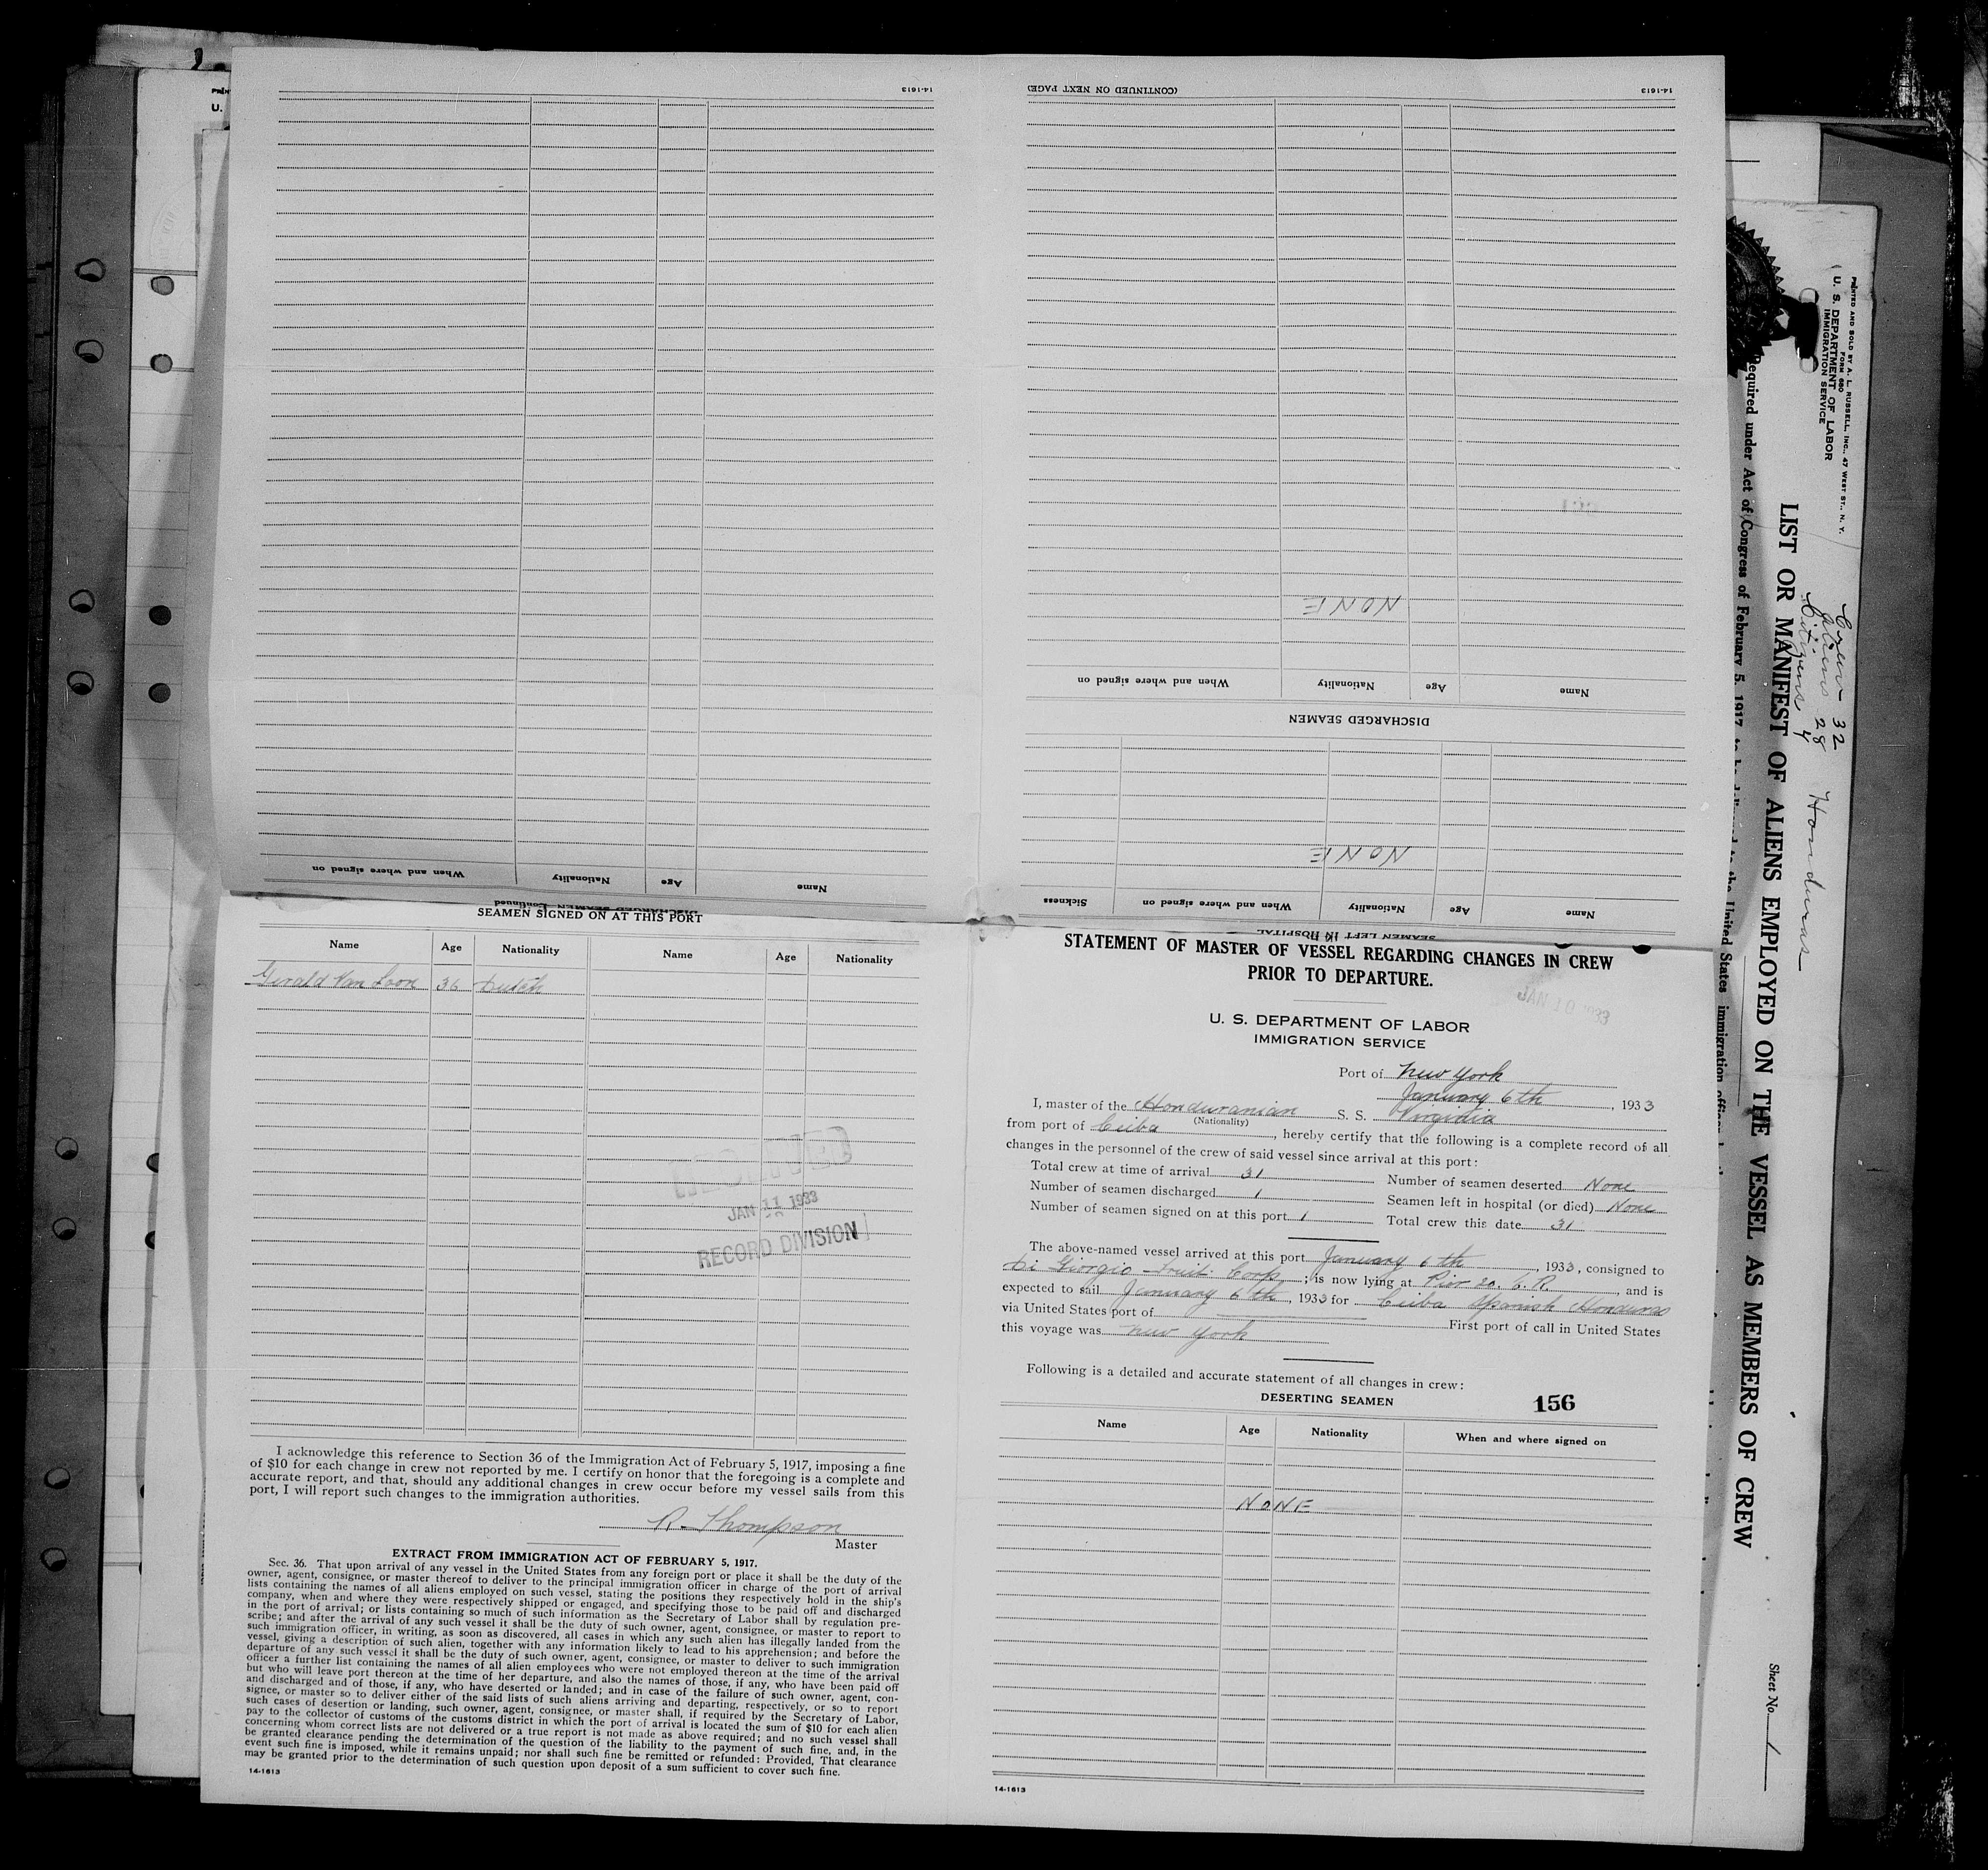 14-1613
When and where signed on
Nationality
Age
Name
DISCHARGED SEAMEN—Continued
(CONTINUED ON NEXT PAGE)
14-1613
NONE
When and where signed on
Nationality
Age
Name
DISCHARGED SEAMEN
NONE
Sickness
When and where signed on
Nationality
Age
Name
SEAMEN LEFT IN HOSPITAL
SEAMEN SIGNED ON AT THIS PORT
Name Age Nationality Name Age Nationality
Gerald Van Loon 36 Dutch
JAN 11 1933
RECORD DIVISION
I acknowledge this reference to Section 36 of the Immigration Act of February 5, 1917, imposing a fine
of $10 for each change in crew not reported by me. I certify on honor that the foregoing is a complete and
accurate report, and that, should any additional changes in crew occur before my vessel sails from this
port, I will report such changes to the immigration authorities.
R. Thompson
Master
EXTRACT FROM IMMIGRATION ACT OF FEBRUARY 5, 1917.
Sec. 36. That upon arrival of any vessel in the United States from any foreign port or place it shall be the duty of the
owner, agent, consignee, or master thereof to deliver to the principal immigration officer in charge of the port of arrival
lists containing the names of all aliens employed on such vessel, stating the positions they respectively hold in the ship's
company, when and where they were respectively shipped or engaged, and specifying those to be paid off and discharged
in the port of arrival; or lists containing so much of such information as the Secretary of Labor shall by regulation pre-
scribe; and after the arrival of any such vessel it shall be the duty of such owner, agent, consignee, or master to report to
such immigration officer, in writing, as soon as discovered, all cases in which any such alien has illegally landed from the
vessel, giving a description of such alien, together with any information likely to lead to his apprehension; and before the
departure of any such vessel it shall be the duty of such owner, agent, consignee, or master to deliver to such immigration
officer a further list containing the names of all alien employees who were not employed thereon at the time of the arrival
but who will leave port thereon at the time of her departure, and also the names of those, if any, who have been paid off
and discharged and of those, if any, who have deserted or landed; and in case of the failure of such owner, agent, con-
signee, or master so to deliver either of the said lists of such aliens arriving and departing, respectively, or so to report
such cases of desertion or landing, such owner, agent, consignee, or master shall, if required by the Secretary of Labor,
pay to the collector of customs of the customs district in which the port of arrival is located the sum of $10 for each alien
concerning whom correct lists are not delivered or a true report is not made as above required; and no such vessel shall
be granted clearance pending the determination of the question of the liability to the payment of such fine, and, in the
event such fine is imposed, while it remains unpaid; nor shall such fine be remitted or refunded: Provided, That clearance
may be granted prior to the determination of such question upon deposit of a sum sufficient to cover such fine.
14-1613
STATEMENT OF MASTER OF VESSEL REGARDING CHANGES IN CREW
PRIOR TO DEPARTURE.
JAN 10 1933
U. S. DEPARTMENT OF LABOR
IMMIGRATION SERVICE
Port of New York
January 6th, 1933
I, master of the Honduranian S. S. Virginia
(Nationality)
from port of Ceiba, hereby certify that the following is a complete record of all
changes in the personnel of the crew of said vessel since arrival at this port:
Total crew at time of arrival 31 Number of seamen deserted None
Number of seamen discharged 1 Seamen left in hospital (or died) None
Number of seamen signed on at this port 1 Total crew this date 31
The above-named vessel arrived at this port January 6th, 1933, consigned to
Di Giorgio Fruit Corp.; is now lying at Pier 20. E. R., and is
expected to sail January 6th, 1933 for Ceiba Spanish Honduras
via United States port of First port of call in United States
this voyage was New York
Following is a detailed and accurate statement of all changes in crew:
DESERTING SEAMEN
156
Name Age Nationality When and where signed on
NONE
14-1613
PRINTED AND SOLD BY A. L. RUSSELL, INC., 47 WEST ST., N. Y.
FORM 680
U. S. DEPARTMENT OF LABOR
IMMIGRATION SERVICE
Crew 32
Aliens 28
Citizens 4
Honduras
LIST OR MANIFEST OF ALIENS EMPLOYED ON THE VESSEL AS MEMBERS OF CREW
Required under Act of Congress of February 5, 1917, to be delivered to the United States immigration
Sheet No. 1